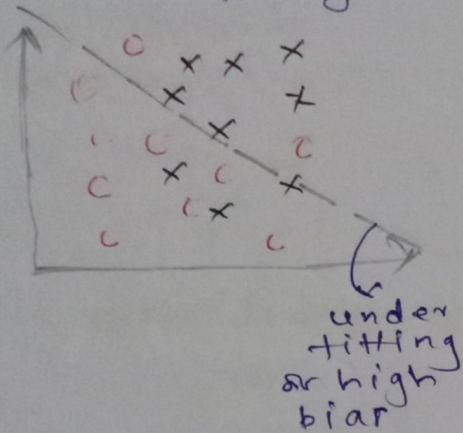 under
fitting
or high
bias